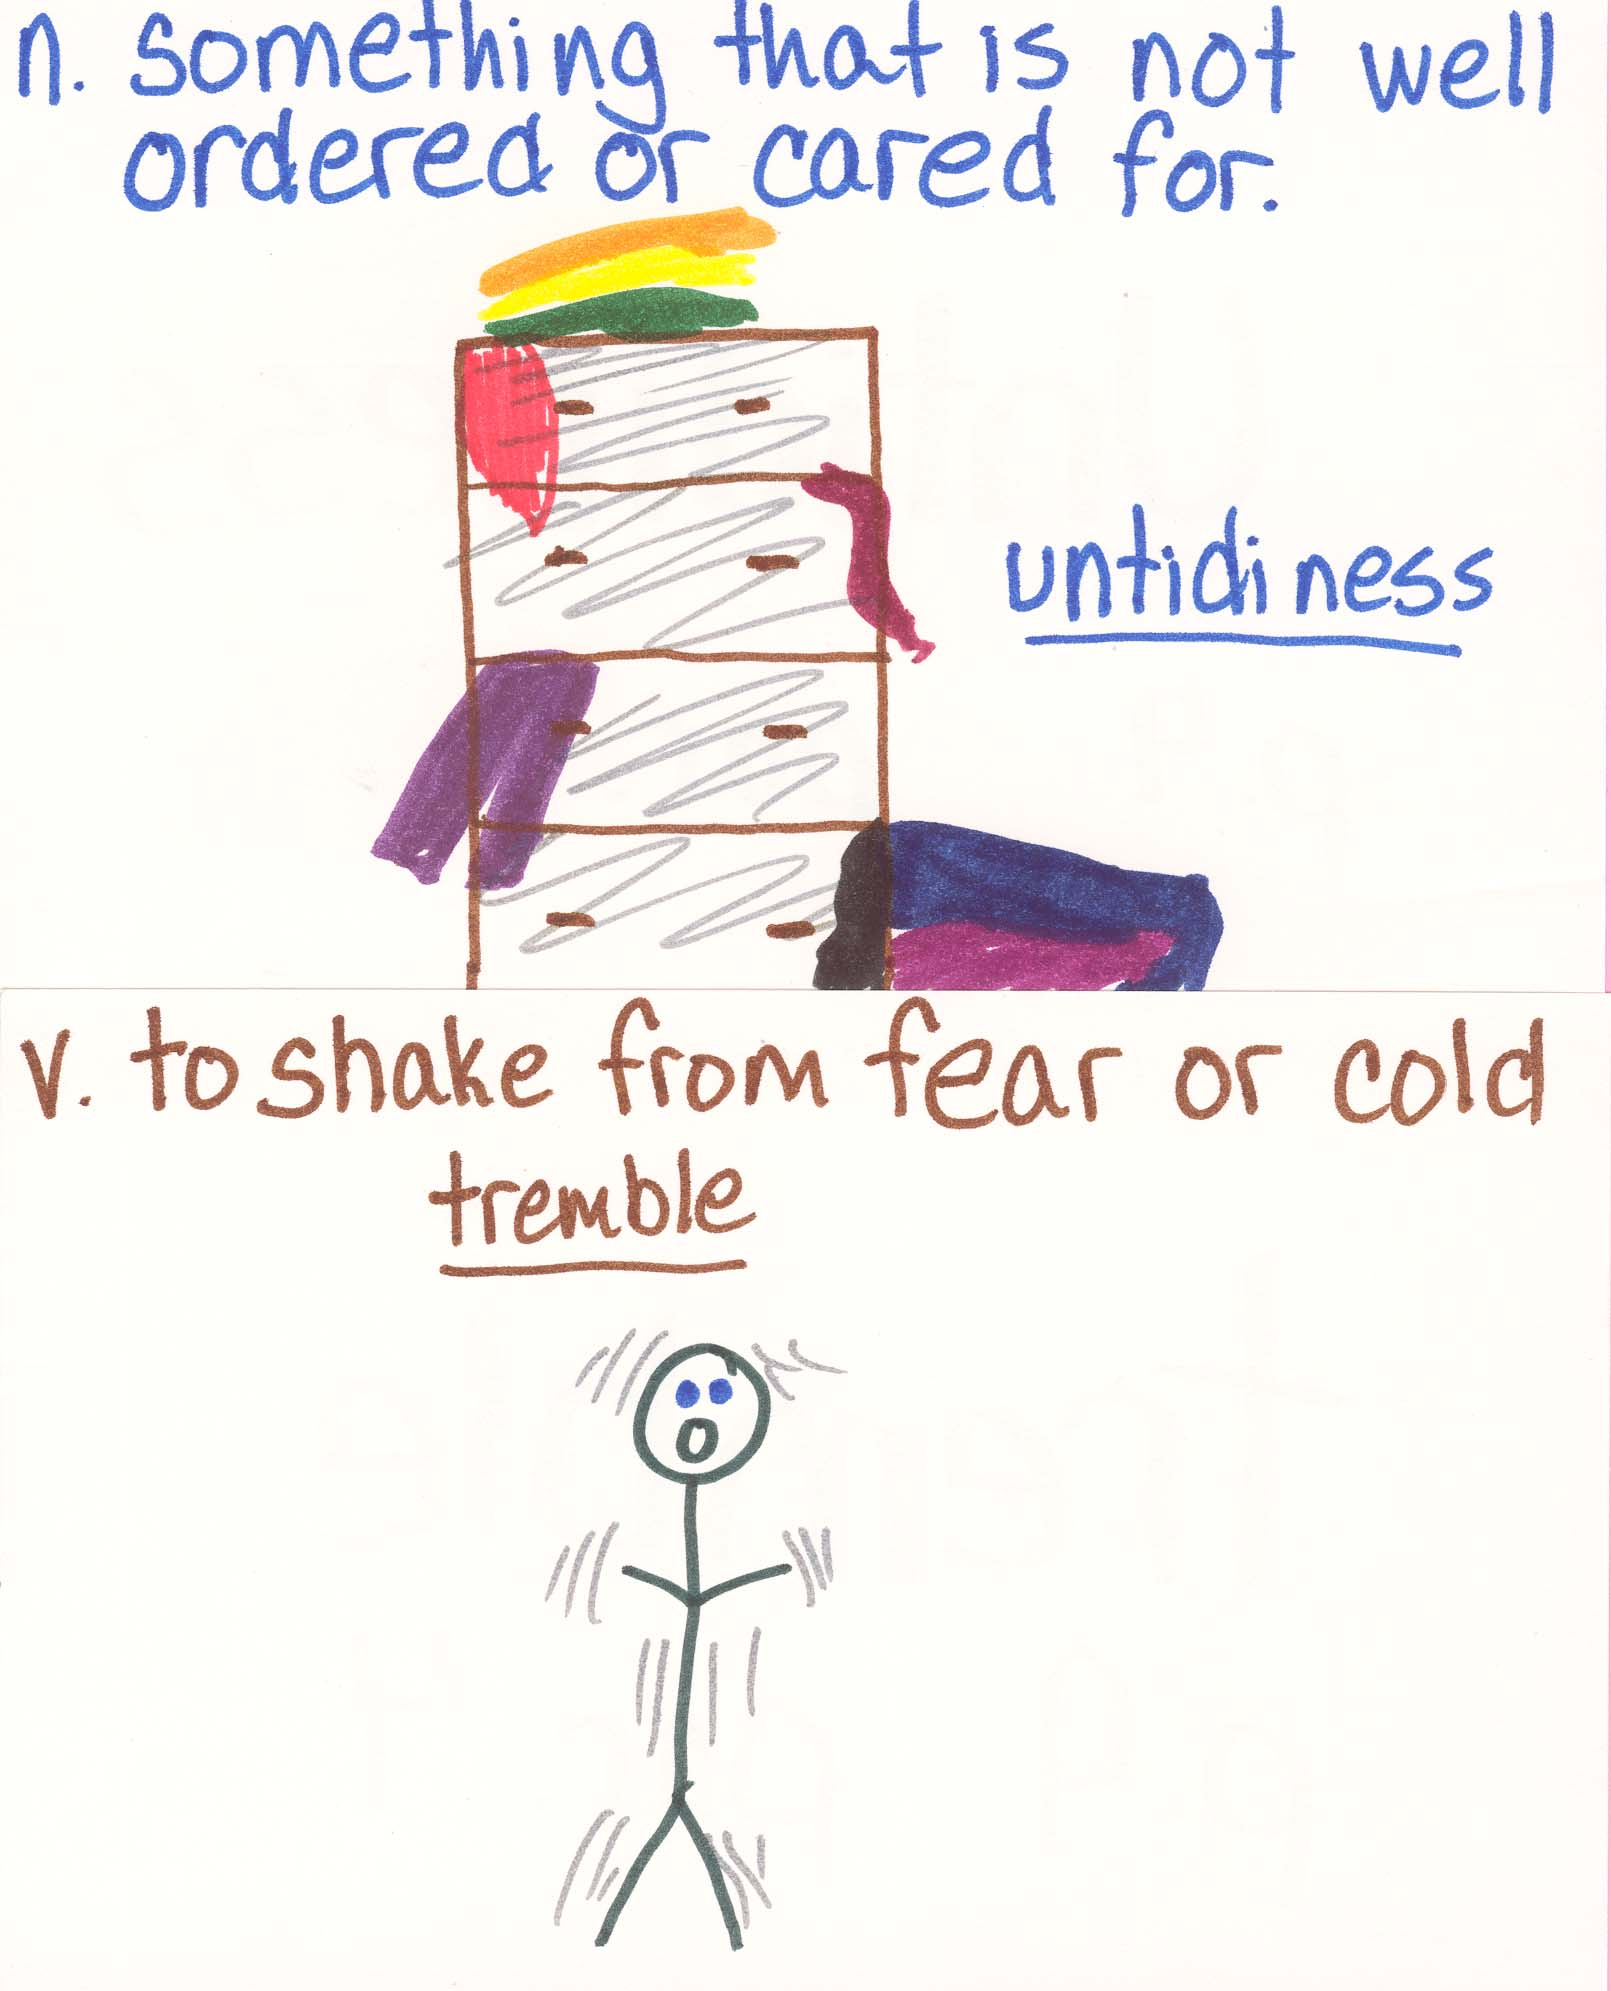 n. something that is not well
ordered or cared for.
untidiness
v. to shake from fear or cold
tremble